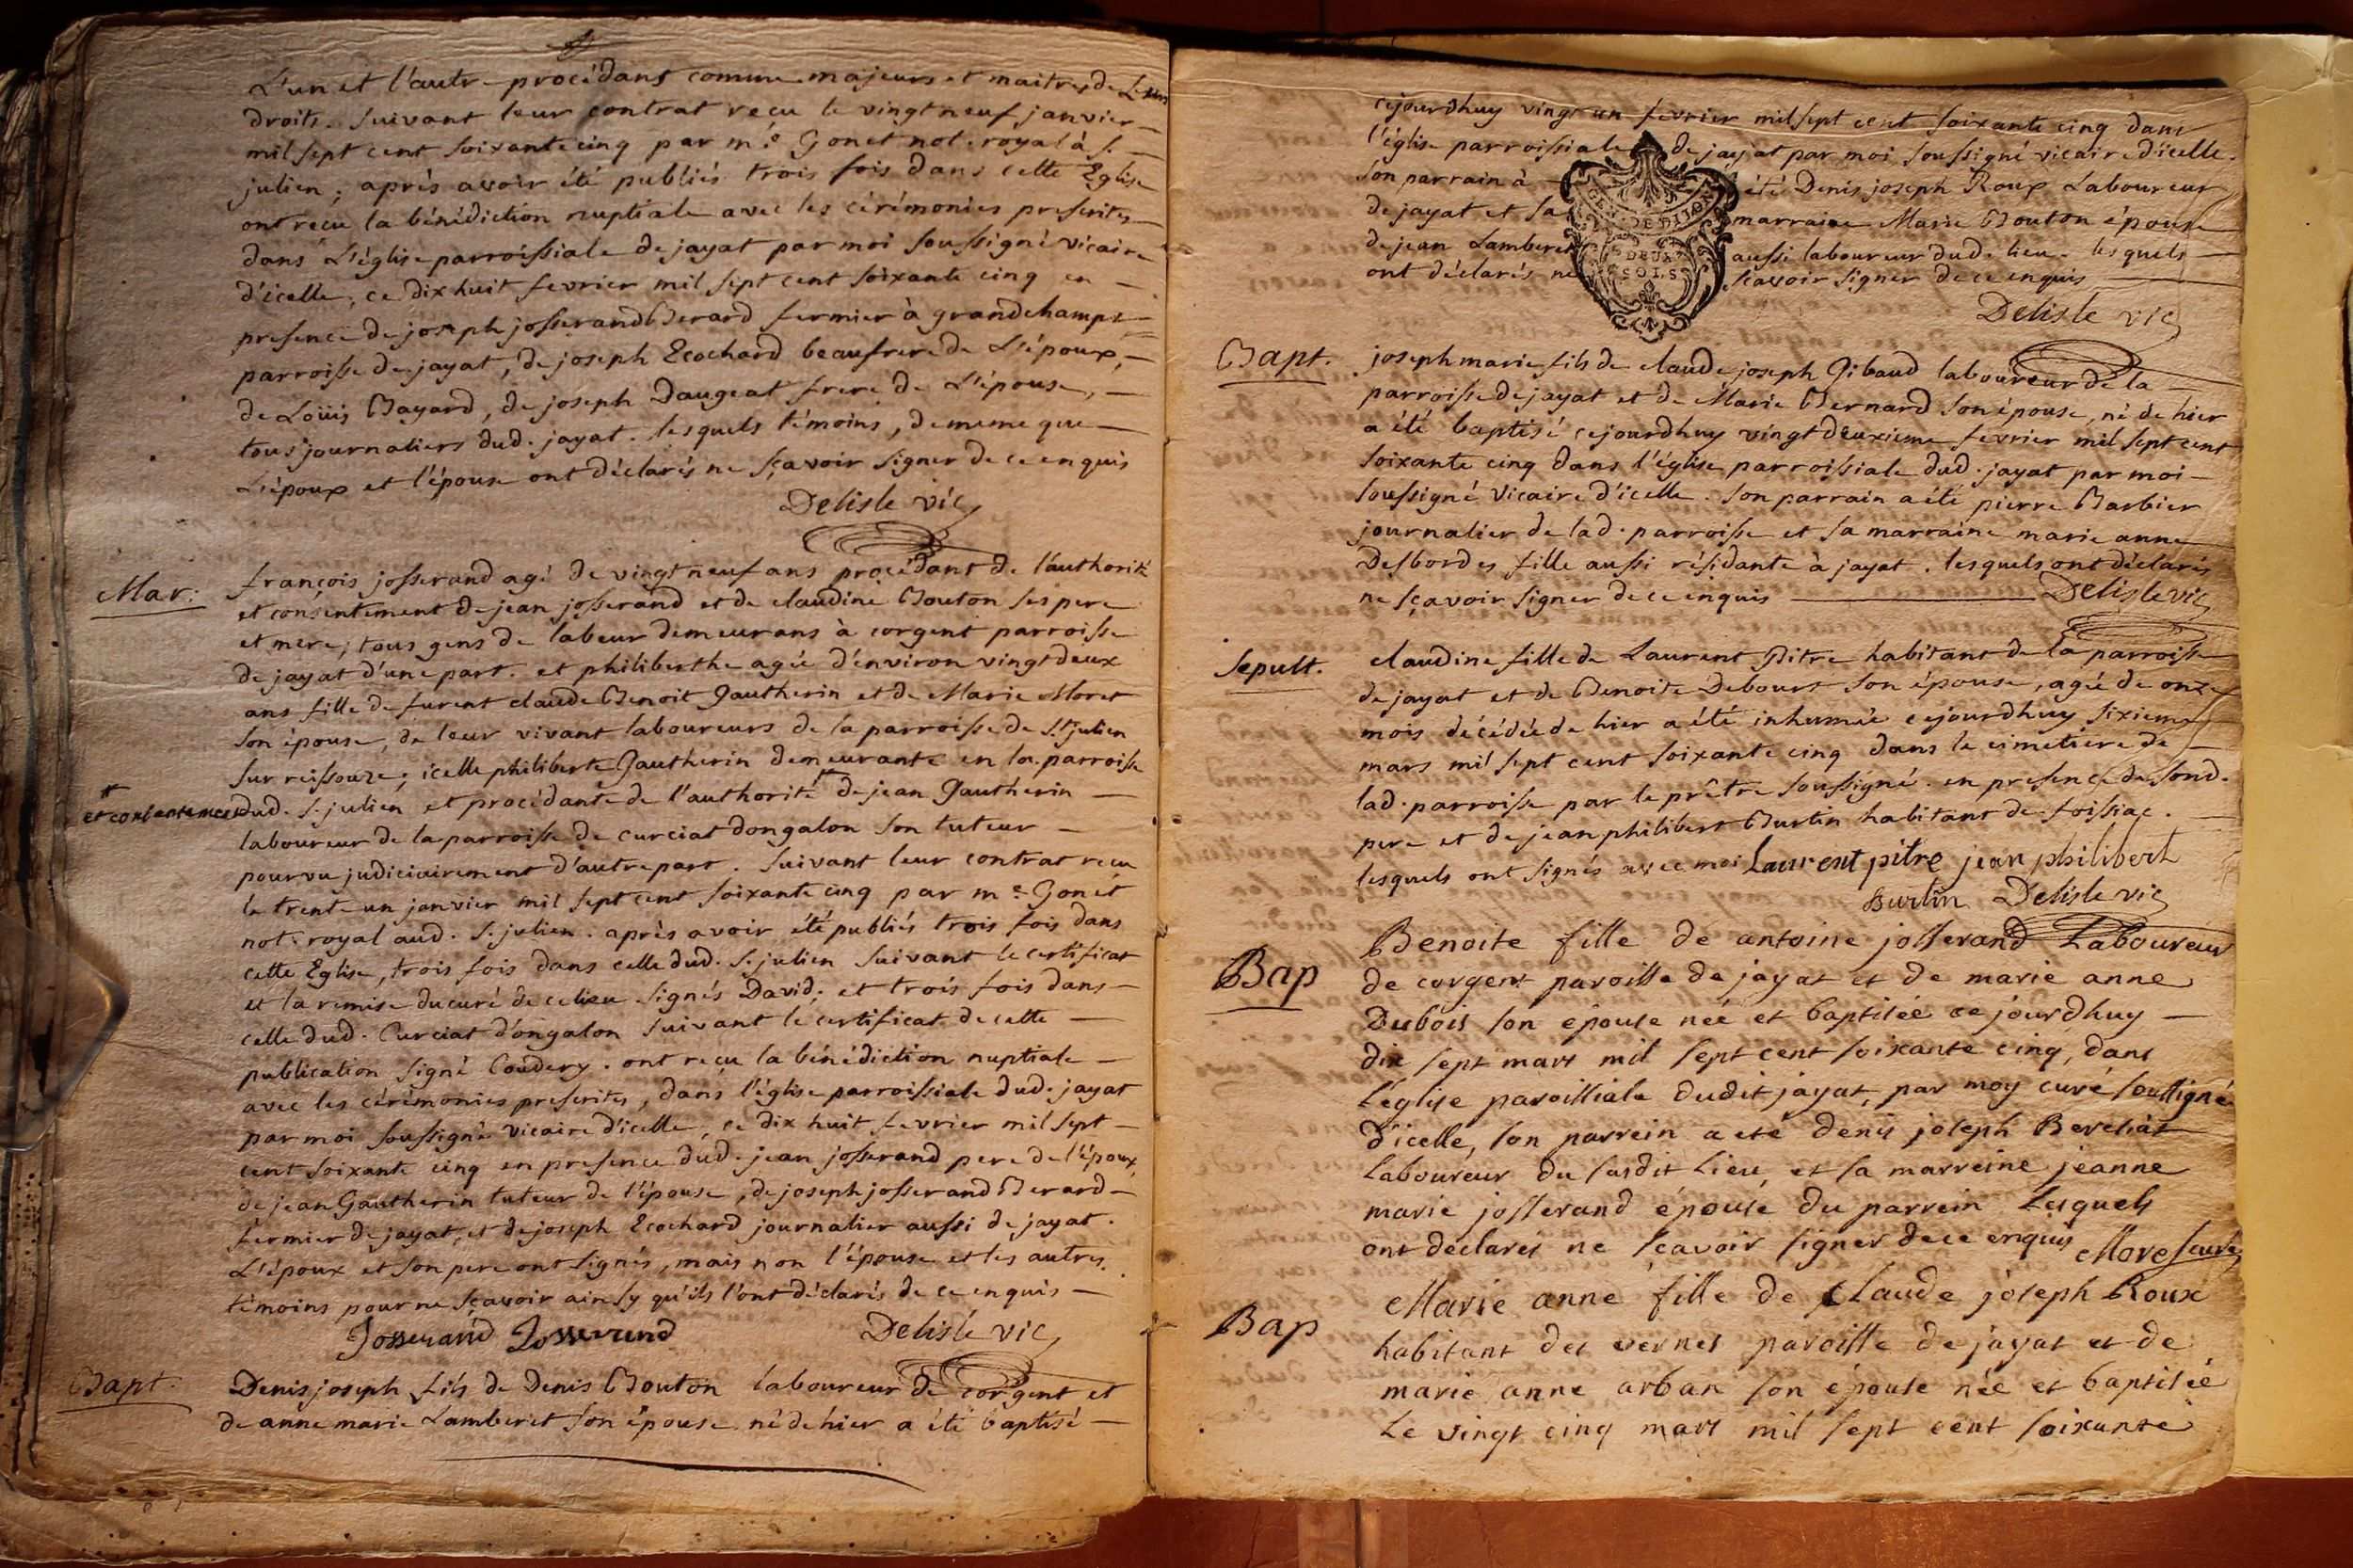 L'un et l'autre procédans comme majeurs et maitres de Leurs
droits. suivant leur contrat reçu le vingt neuf janvier
mil sept cent soixante cinq par m.e Gonet not. royal à S.
julien; après avoir été publiés trois fois dans cette Eglise
ont reçu la bénédiction nuptiale avec les cérémonies prescrites
dans L'église parroissiale de jayat par moi soussigné vicaire
d'icelle, ce dix huit fevrier mil sept cent soixante cinq en
presence de joseph josserand Berard fermier à grandchamps
parroisse de jayat, de joseph Ecochard beaufrere de L'époux,
de Loüis Bayard, de joseph Daugeat frere de L'épouse,
tous journaliers dud. jayat. lesquels témoins, de meme que
L'époux et l'épouse ont déclarés ne sçavoir signer de ce enquis
Delisle vic
Mar: françois josserand agé de vingt neuf ans procédant de l'authorité
et consentement de jean josserand et de claudine Bouton ses pere
et mere; tous gens de labeur demeurans à corgent parroisse
de jayat d'une part. et philiberthe agée d'environ vingt deux
ans fille de furent claude Benoit gautherin et de Marie Moret
son épouse, de leur vivant laboureurs de la parroisse de St julien
sur reissouze; icelle philiberte Gautherin demeurante en la parroisse
et consentement dud. S. julien et procédante de l'authorité de jean gautherin
laboureur de la parroisse de curciat dongalon son tuteur
pourvu judiciairement d'autre part. suivant leur contrat reçu
le trente un janvier mil sept cent soixante cinq par m.e Gonet
not. royal aud. S. julien. après avoir été publiés trois fois dans
cette Eglise, trois fois dans celle dud. S. julien suivant le certificat
et la remise du curé de ce lieu signés David; et trois fois dans
celle dud. Curciat d'ongalon suivant le certificat de cette
publication signé Coudery. ont reçu la bénédiction nuptiale
avec les cérémonies prescrites, dans l'église parroissiale dud. jayat
par moi soussigné vicaire d'icelle, ce dix huit fevrier mil sept
cent soixante cinq en presence dud. jean josserand pere de l'époux,
de jean Gautherin tuteur de l'épouse, de joseph josserand Berard
fermier de jayat, et de joseph Ecochard journalier aussi de jayat.
L'époux et son pere ont signés, mais non l'épouse et les autres
témoins pour ne sçavoir ainsy qu'ils l'ont déclarés de ce enquis
Josserand Josserand Delisle vic
Bapt. Denis joseph fils de Denis Bouton laboureur de corgent et
de anne marie Lamberet son épouse né de hier a été baptisé
cejourdhuy vingt un fevrier mil sept cent soixante cinq dans
l'église parroissiale de jayat par moi soussigné vicaire d'icelle.
son parrain à été Denis joseph Roux Laboureur
de jayat et sa marraine Marie Bouton épouse
de jean Lamberet aussi laboureur dud. lieu. lesquels
ont déclarés ne sçavoir signer de ce enquis
GEN. DE DIJON
DEUX
SOLS
Delisle vic
Bapt. joseph marie fils de claude joseph Gibaud laboureur de la
parroisse de jayat et de Marie Bernard son épouse, né de hier
a été baptisé cejourdhuy vingt deuxieme fevrier mil sept cent
soixante cinq dans l'église parroissiale dud. jayat par moi
soussigné vicaire d'icelle. son parrain a été pierre Barbier
journalier de lad. parroisse et sa marraine marie anne
Desbordes fille aussi résidante à jayat. lesquels ont déclarés
ne sçavoir signer de ce enquis Delisle vic
sepult. claudine fille de Laurent Pitre habitant de la parroisse
de jayat et de Benoite Debourt son épouse, agée de onze
mois décédée de hier a été inhumée cejourdhuy sixieme
mars mil sept cent soixante cinq dans le cimetiere de
lad. parroisse par le prêtre soussigné. en presence de sond.
pere et de jean philibert Burtin habitant de foissiac.
lesquels ont signés avec moi Laurent pitre jean philibert
Burtin Delisle vic
Bap Benoite fille de antoine josserand Laboureur
de corgent paroisse de jayat et de marie anne
Dubois son épouse née et baptisée ce jourdhuy
dix sept mars mil sept cent soixante cinq, dans
l'eglise paroissiale dudit jayat, par moy curé soussigné
d'icelle, son parrein a eté denis joseph Bereliat
Laboureur du susdit Lieu, et sa marreine jeanne
marie josserand épouse du parrein Lesquels
ont déclarés ne sçavoir signer de ce enquis Morel curé
Bap Marie anne fille de Claude joseph Roux
habitant des vernes paroisse de jayat et de
marie anne arban son épouse née et baptisée
Le vingt cinq mars mil sept cent soixante